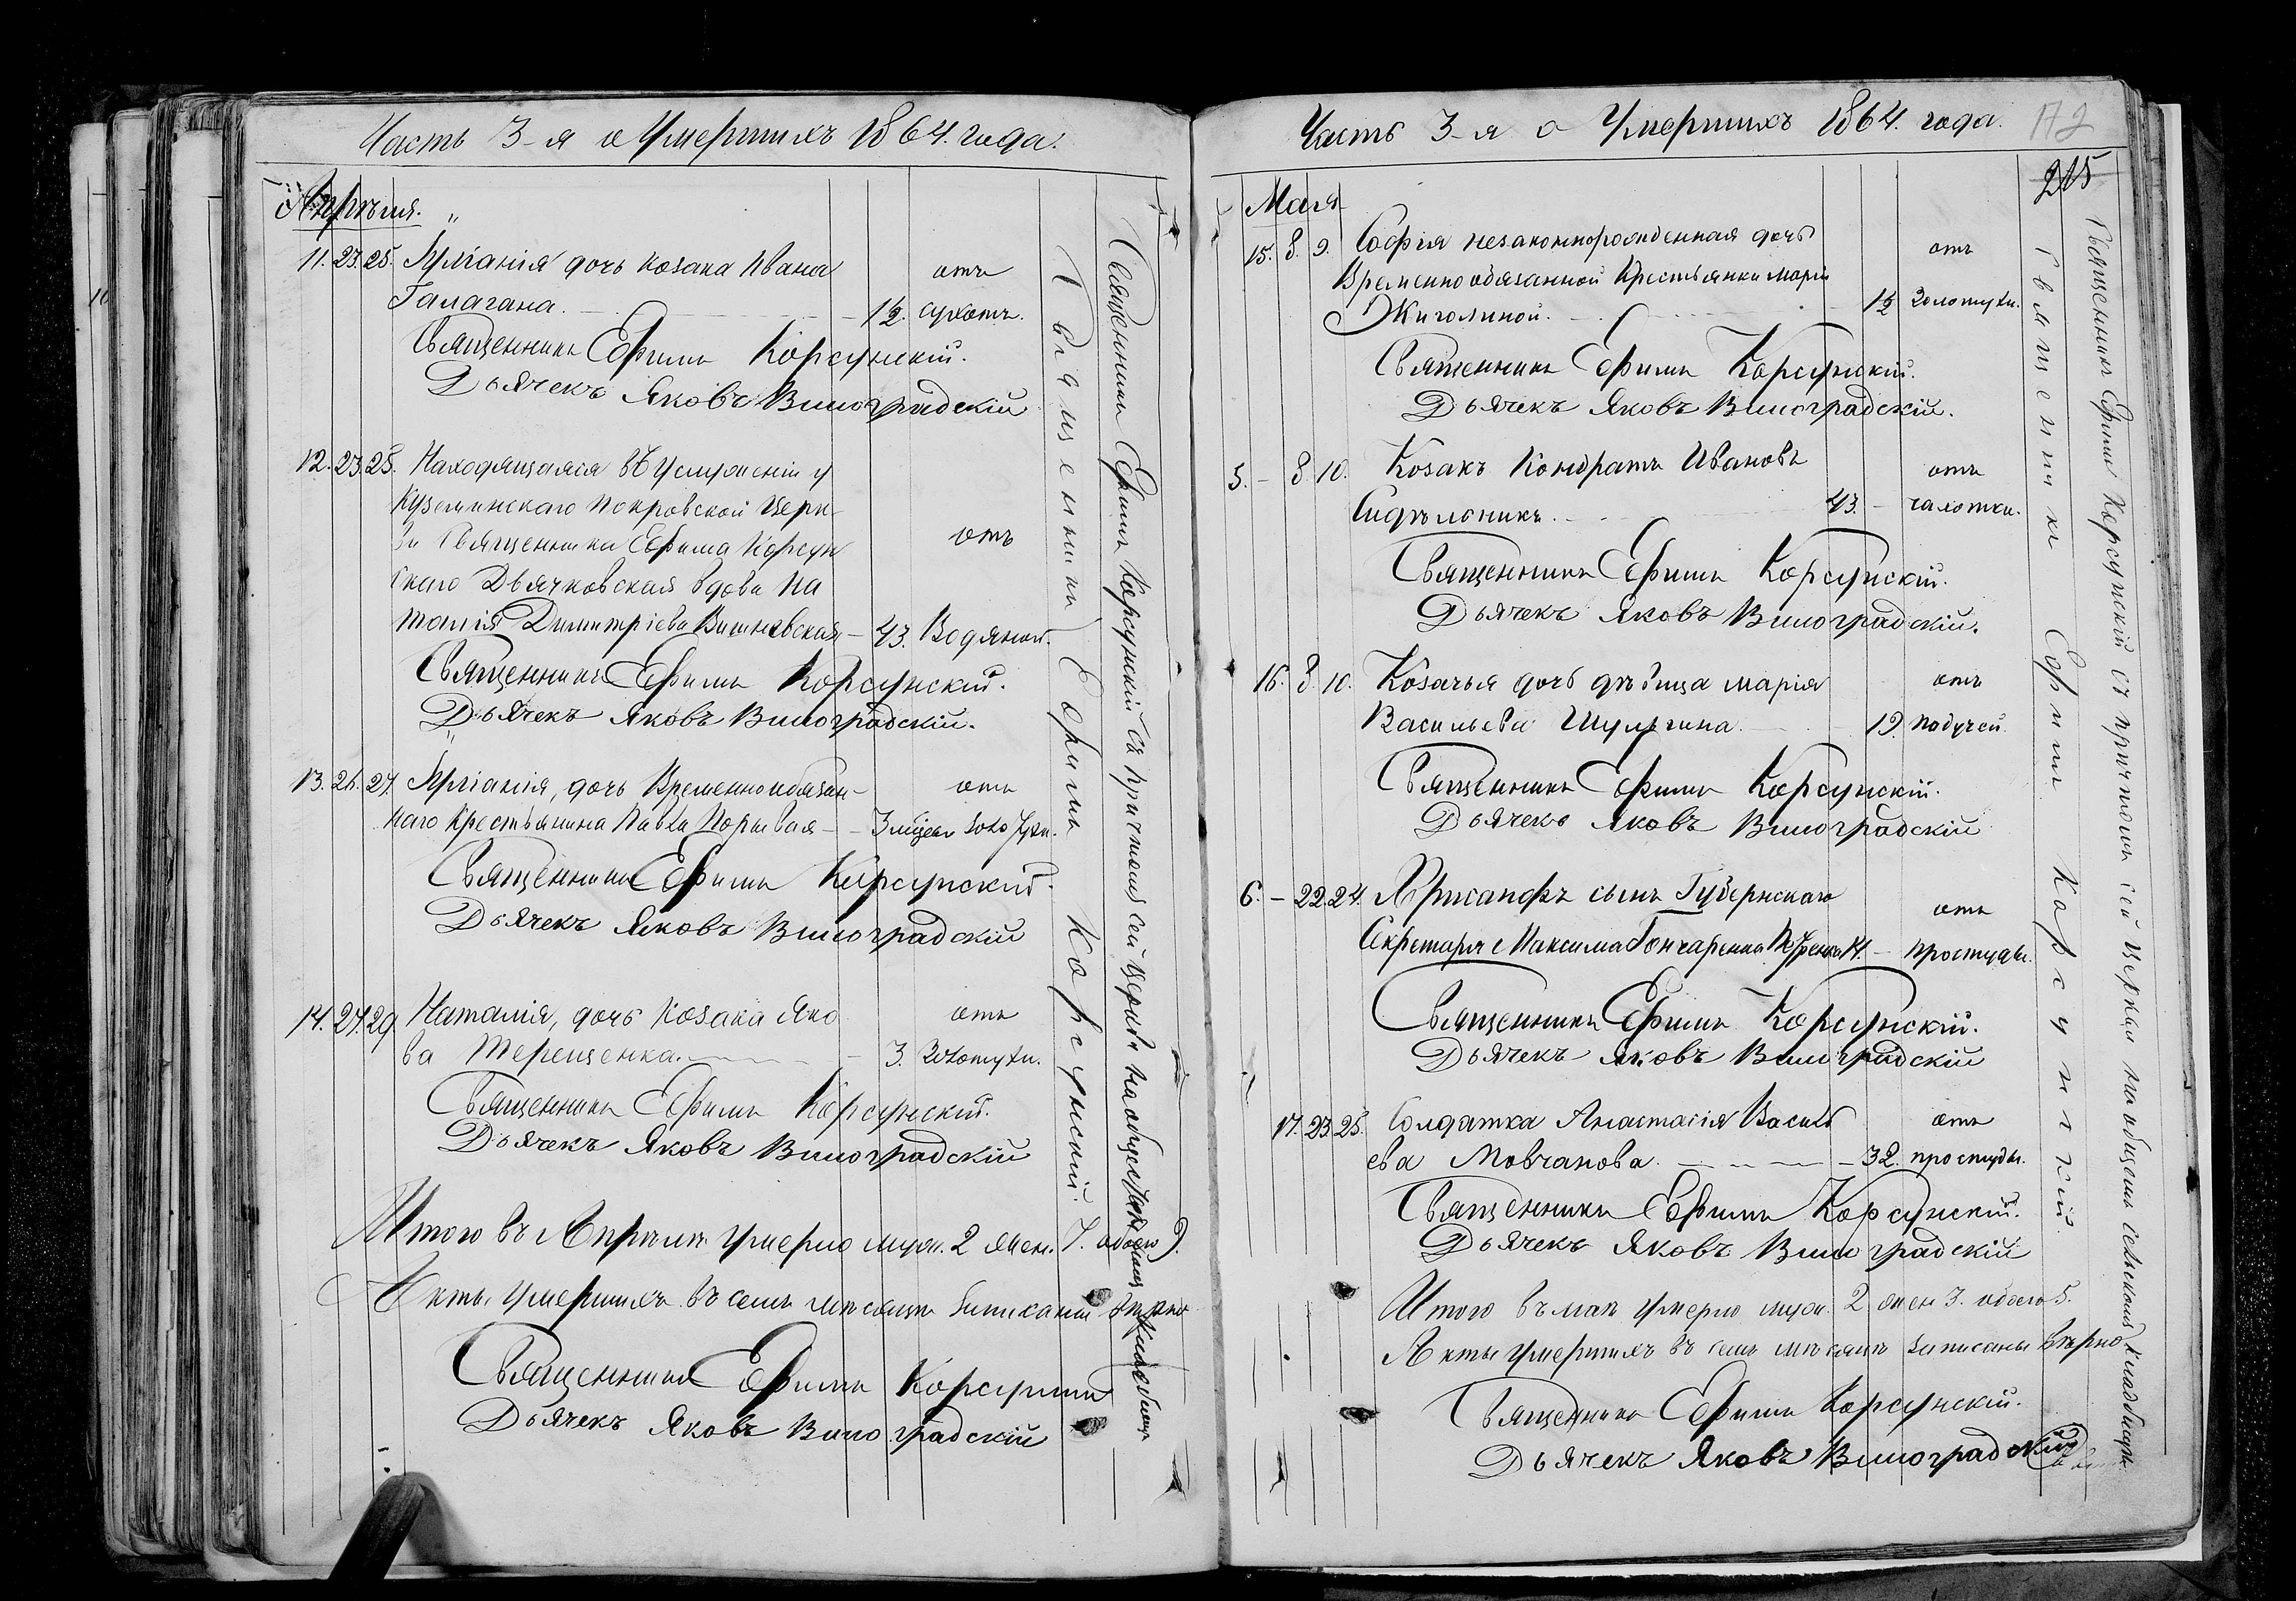 Часть 3-я о Умершихъ 1864. года.
Апрѣля.
11. 23. 25. Иулiанiя дочь козака Ивана отъ
Галагана. 1/2. сухотъ.
Священникъ Ефимъ Корсунскiй.
Дьячекъ Яковъ Виноградскiй
12. 23. 25. Находящаяся въ услуженiи у
Куземинского Покровской Церк-
ви Священника Ефима Корсун отъ
скаго Дьячковская вдова На
талiя Димитрiева Вишневская 43. Водяной.
Священникъ Ефимъ Корсунскiй.
Дьячекъ Яковъ Виноградскiй.
13. 26. 27. Иулiанiя, дочь Временнообязан- отъ
наго Крестьянина Павла 3 мѣсяц золотухи.
Священникъ Ефимъ Корсунскiй.
Дьячекъ Яковъ Виноградскiй
14. 27. 29. Наталiя, дочь козака Яко отъ
ва Терещенка. 3. Золотухи.
Священникъ Ефимъ Корсунскiй.
Дьячекъ Яковъ Виноградскiй
Итого въ Апрѣлѣ умерло муж. 2 жен. 7. обоего 9.
Акты умершихъ въ семъ мѣсяцѣ записаны вѣрно
Священникъ Ефимъ Корсунскiй
Дьячекъ Яковъ Виноградскiй
Священникъ Ефимъ Корсунскiй.
Священникъ Ефимъ Корсунскiй съ причтомъ сей Церкви на общемъ кладбищѣ
Часть 3-я о Умершихъ 1864. года.
172
215
Мая
15. 8. 9. Софiя незаконнорожденная дочь отъ
Временнообязанной Крестьянки Марiи
Жиголиной. 1/2 Золотухи.
Священникъ Ефимъ Корсунскiй.
Дьячекъ Яковъ Виноградскiй.
5. – 8. 10. Козакъ Кондратъ Ивановъ отъ
43. – чахотки.
Священникъ Ефимъ Корсунскiй.
Дьячекъ Яковъ Виноградскiй.
16. 8. 10. Козачья дочь дѣвица Марiя отъ
Васильева Шульгина 19. падучей.
Священникъ Ефимъ Корсунскiй.
Дьячекъ Яковъ Виноградскiй
6. – 22. 24. Хрисанфъ сынъ Губернскаго отъ
Секретаря Максима Гончаренка простуды.
Священникъ Ефимъ Корсунскiй.
Дьячекъ Яковъ Виноградскiй
17. 23. 25. Солдатка Анастасiя Василь отъ
ева Мовчанова. 32. простуды.
Священникъ Ефимъ Корсунскiй.
Дьячекъ Яковъ Виноградскiй
Итого въ маѣ умерло муж. 2 жен 3. обоего 5.
Акты умершихъ въ семъ мѣсяцѣ записаны вѣрно
Священникъ Ефимъ Корсунскiй.
Дьячекъ Яковъ Виноградскiй
Священникъ Ефимъ Корсунскiй.
Священникъ Ефимъ Корсунскiй съ причтомъ сей Церкви на общемъ сельскомъ кладбищѣ.